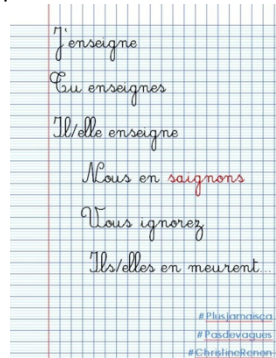 J'enseigne
Tu enseignes
Il/elle enseigne
Nous en saignons
Vous ignorez
Ils/elles en meurent...
#Plusjamaisça
#Pasdevagues
#ChristineRenon